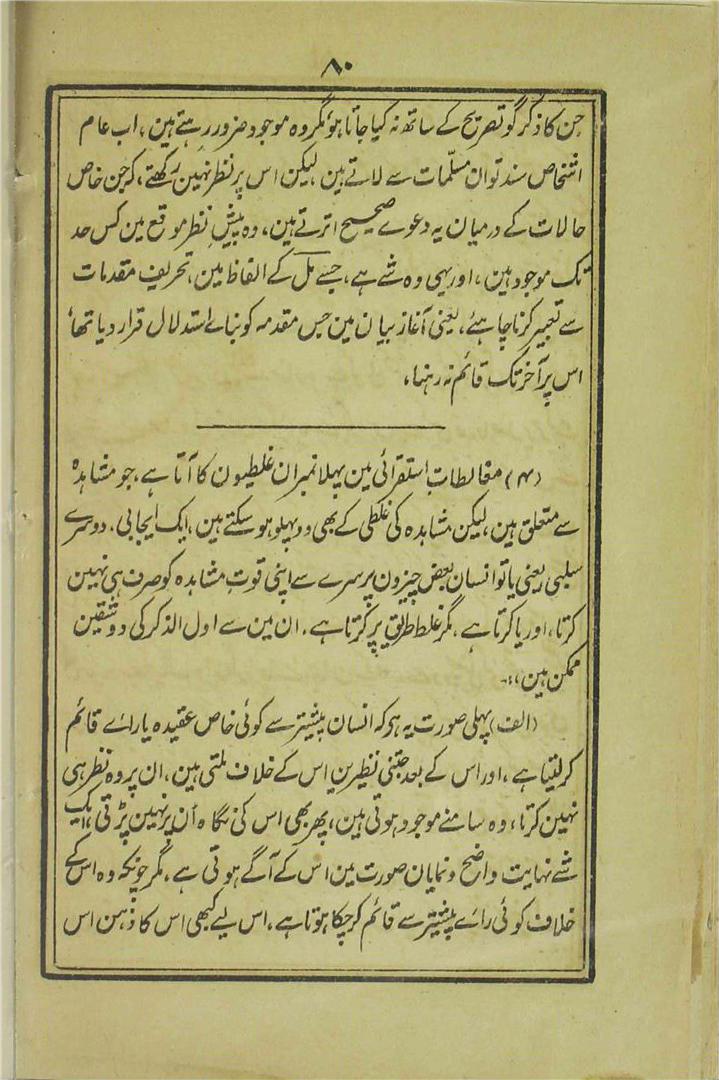 ۸۰
جن کا ذکر گو تصریح کے ساتھ نہ کیا جاتا ہو، مگر وہ موجود ضرور رہتے ہین، اب عام
اشخاص سند تو ان مسلّمات سے لاتے ہین، لیکن اس پر نظر نہین رکھتے، کہ جن خاص
حالات کے درمیان یہ دعوے صحیح اترتے ہین، وہ پیشِ نظر موقع مین کس حد
تک موجود ہین، اور یہی وہ شے ہے، جسے مل کے الفاظ مین، تحریف مقدمات
سے تعبیر کرنا چاہئے، یعنی آغاز بیان مین جس مقدمہ کو بنائے استدلال قرار دیا تھا،
اس پر آخر تک قائم نہ رہنا،
(۴) مغالطات استقرائی مین پہلا نمبر ان غلطیون کا آتا ہے، جو مشاہدہ
سے متعلق ہین، لیکن مشاہدہ کی غلطی کے بھی دو پہلو ہو سکتے ہین، ایک ایجابی، دوسرے
سلبی، یعنی یا تو انسان بعض چیزون پر سرے سے اپنی قوتِ مشاہدہ کو صرف ہی نہین
کرتا، اور یا کرتا ہے، مگر غلط طریق پر کرتا ہے، ان مین سے اول الذکر کی دو شقین
ممکن ہین،:۔
(الف) پہلی صورت یہ ہی کہ انسان پیشتر سے کوئی خاص عقیدہ یا راے قائم
کر لیتا ہے، اور اس کے بعد جتنی نظیرین اس کے خلاف ملتی ہین، ان پر وہ نظر ہی
نہین کرتا، وہ سامنے موجود ہوتی ہین، پھر بھی اس کی نگاہ اُن پر نہین پڑتی، ایک
شے نہایت واضح و نمایان صورت مین اس کے آگے ہوتی ہے، مگر چونکہ وہ اس کے
خلاف کوئی راے پیشتر سے قائم کر چکا ہوتا ہے، اس لیے کبھی اس کا ذہن اس